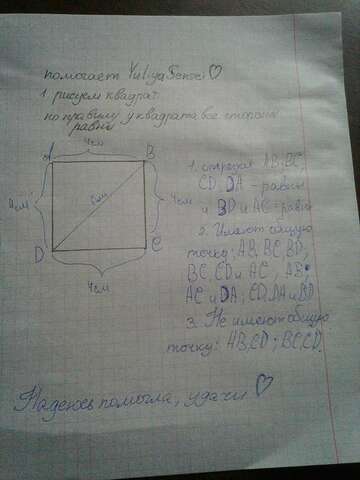 помогает YuliyaSensei♡
1 рисуем квадрат
по правилу у квадрата все стороны
равны
4см
A
B
4см
4см
D
C
4см
1. отрезки AB, BC,
CD, DA - равны
и BD и AC - равны
2. Имеют общую
точку: AB, BC, BD,
BC, CD и AC, AB
AC и DA; CD, DA и BD
3. Не имеют общую
точку: AB, CD; BC, CD.
Надеюсь помогла, удачи ♡